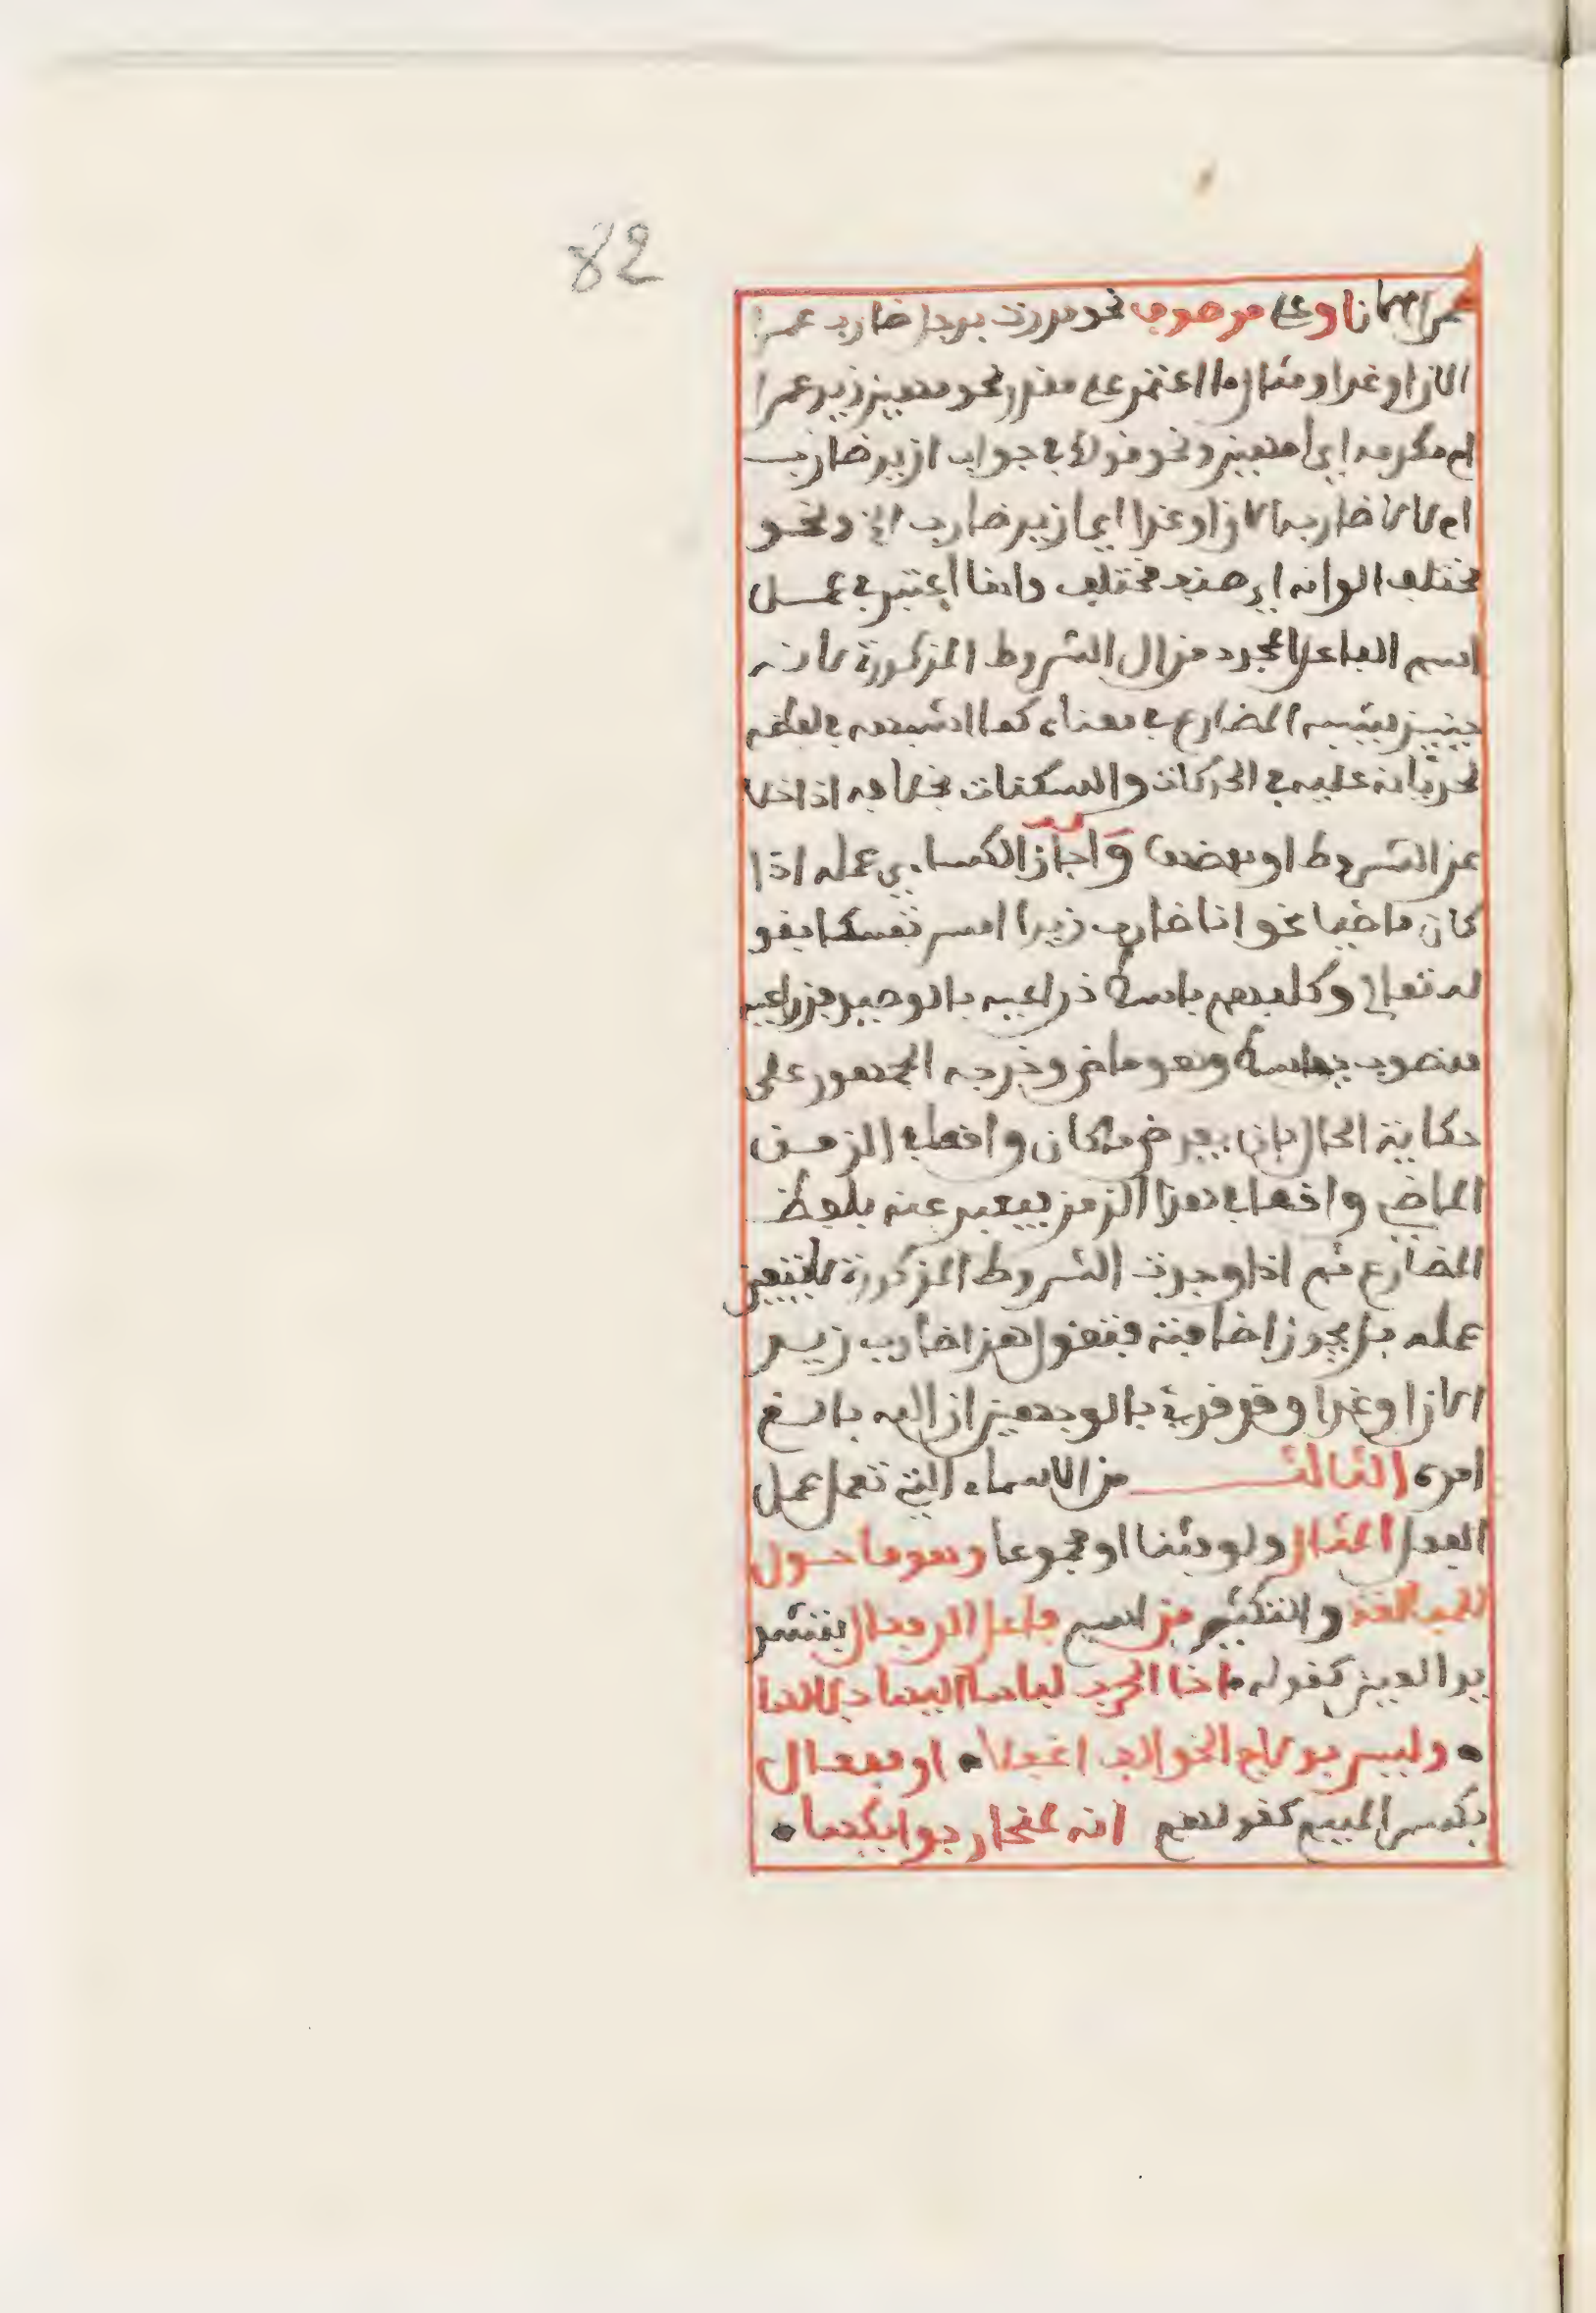 82
او على موصوف نحو مررت برجل ضارب عمرا
الان او غدا ومثال ما اعتمد على مقدر نحو مهين زيد عمرا
ام مكرمه اي امهين ونحو قولك في جواب ازيد ضارب
ام لا لا ضاربه الان او غدا اي ما زيد ضارب الخ ونحو
مختلف الوانه اي صنف مختلف وانما اعتبر في عمل
اسم الفاعل المجرد من ال الشروط المذكورة لانه
حينئذ يشبه المضارع في معناه كما اشبهه في لفظه
لجريانه عليه في الحركات والسكنات بخلافه اذا خلا
عن الشروط او بعضها واجاز الكسائي عمله اذا
كان ماضيا نحو انا ضارب زيدا امس تمسكا بقو
له تعالى وكلبهم باسط ذراعيه بالوصيد فذراعيه
منصوب بباسط وهو ماض وخرجه الجمهور على
حكاية الحال بان يفرض ما كان واقعا في الزمن
الماضي واقعا في هذا الزمن فيعبر عنه بلفظ
المضارع ثم اذا وجدت الشروط المذكورة لا يتعين
عمله بل يجوز اضافته فتقول هذا ضارب زيد
الان او غدا وقد قرئ بالوجهين ان الله بالغ
امره الثالث من الاسماء التي تعمل عمل
الفعل المثال ولو مثنا او مجموعا وهو ما حول
للمبالغة والتكثير من اسم فاعل الى فعال بتشد
يد العين كقوله اخا الحرب لباسا اليها جلالها
• وليس بولاج الخوالف اعقلا • او مفعال
بكسر الميم كقولهم انه لمنحار بوائكها •